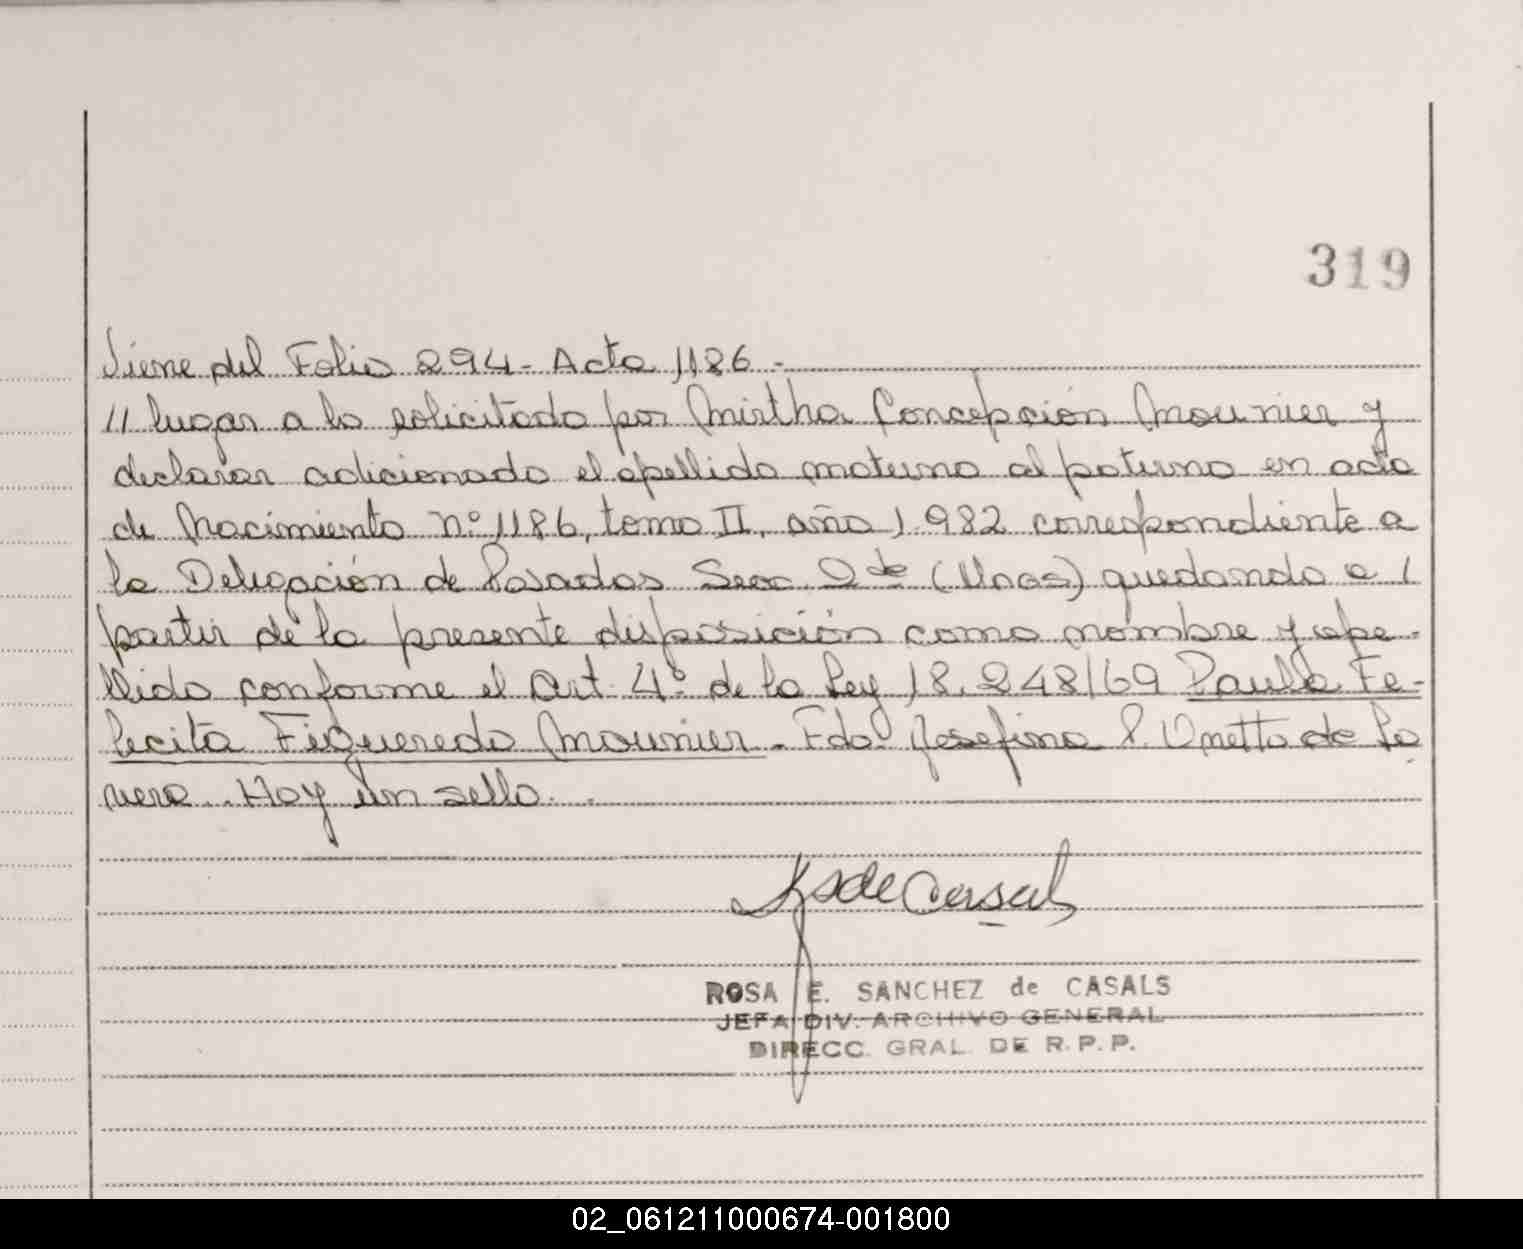 319
Viene del Folio 294 - Acta 1186 -
// lugar a lo solicitado por Mirtha Concepción Mounier y
declarar adicionado el apellido materno al paterno en acta
de Nacimiento nº 1186, tomo II, año 1.982 correspondiente a
la Delegación de Posadas Secc 2da (Mnes) quedando a /
partir de la presente disposición como nombre y ape-
llido conforme el Art. 4º de la Ley 18.248/69 Paula Fe-
licita Figueredo Mounier - Fdo. Josefina P. Umetto de Ta
vera.. Hay un sello. -
ROSA E. SANCHEZ de CASALS
JEFA DIV. ARCHIVO GENERAL
DIRECC. GRAL. DE R.P.P.
02_061211000674-001800